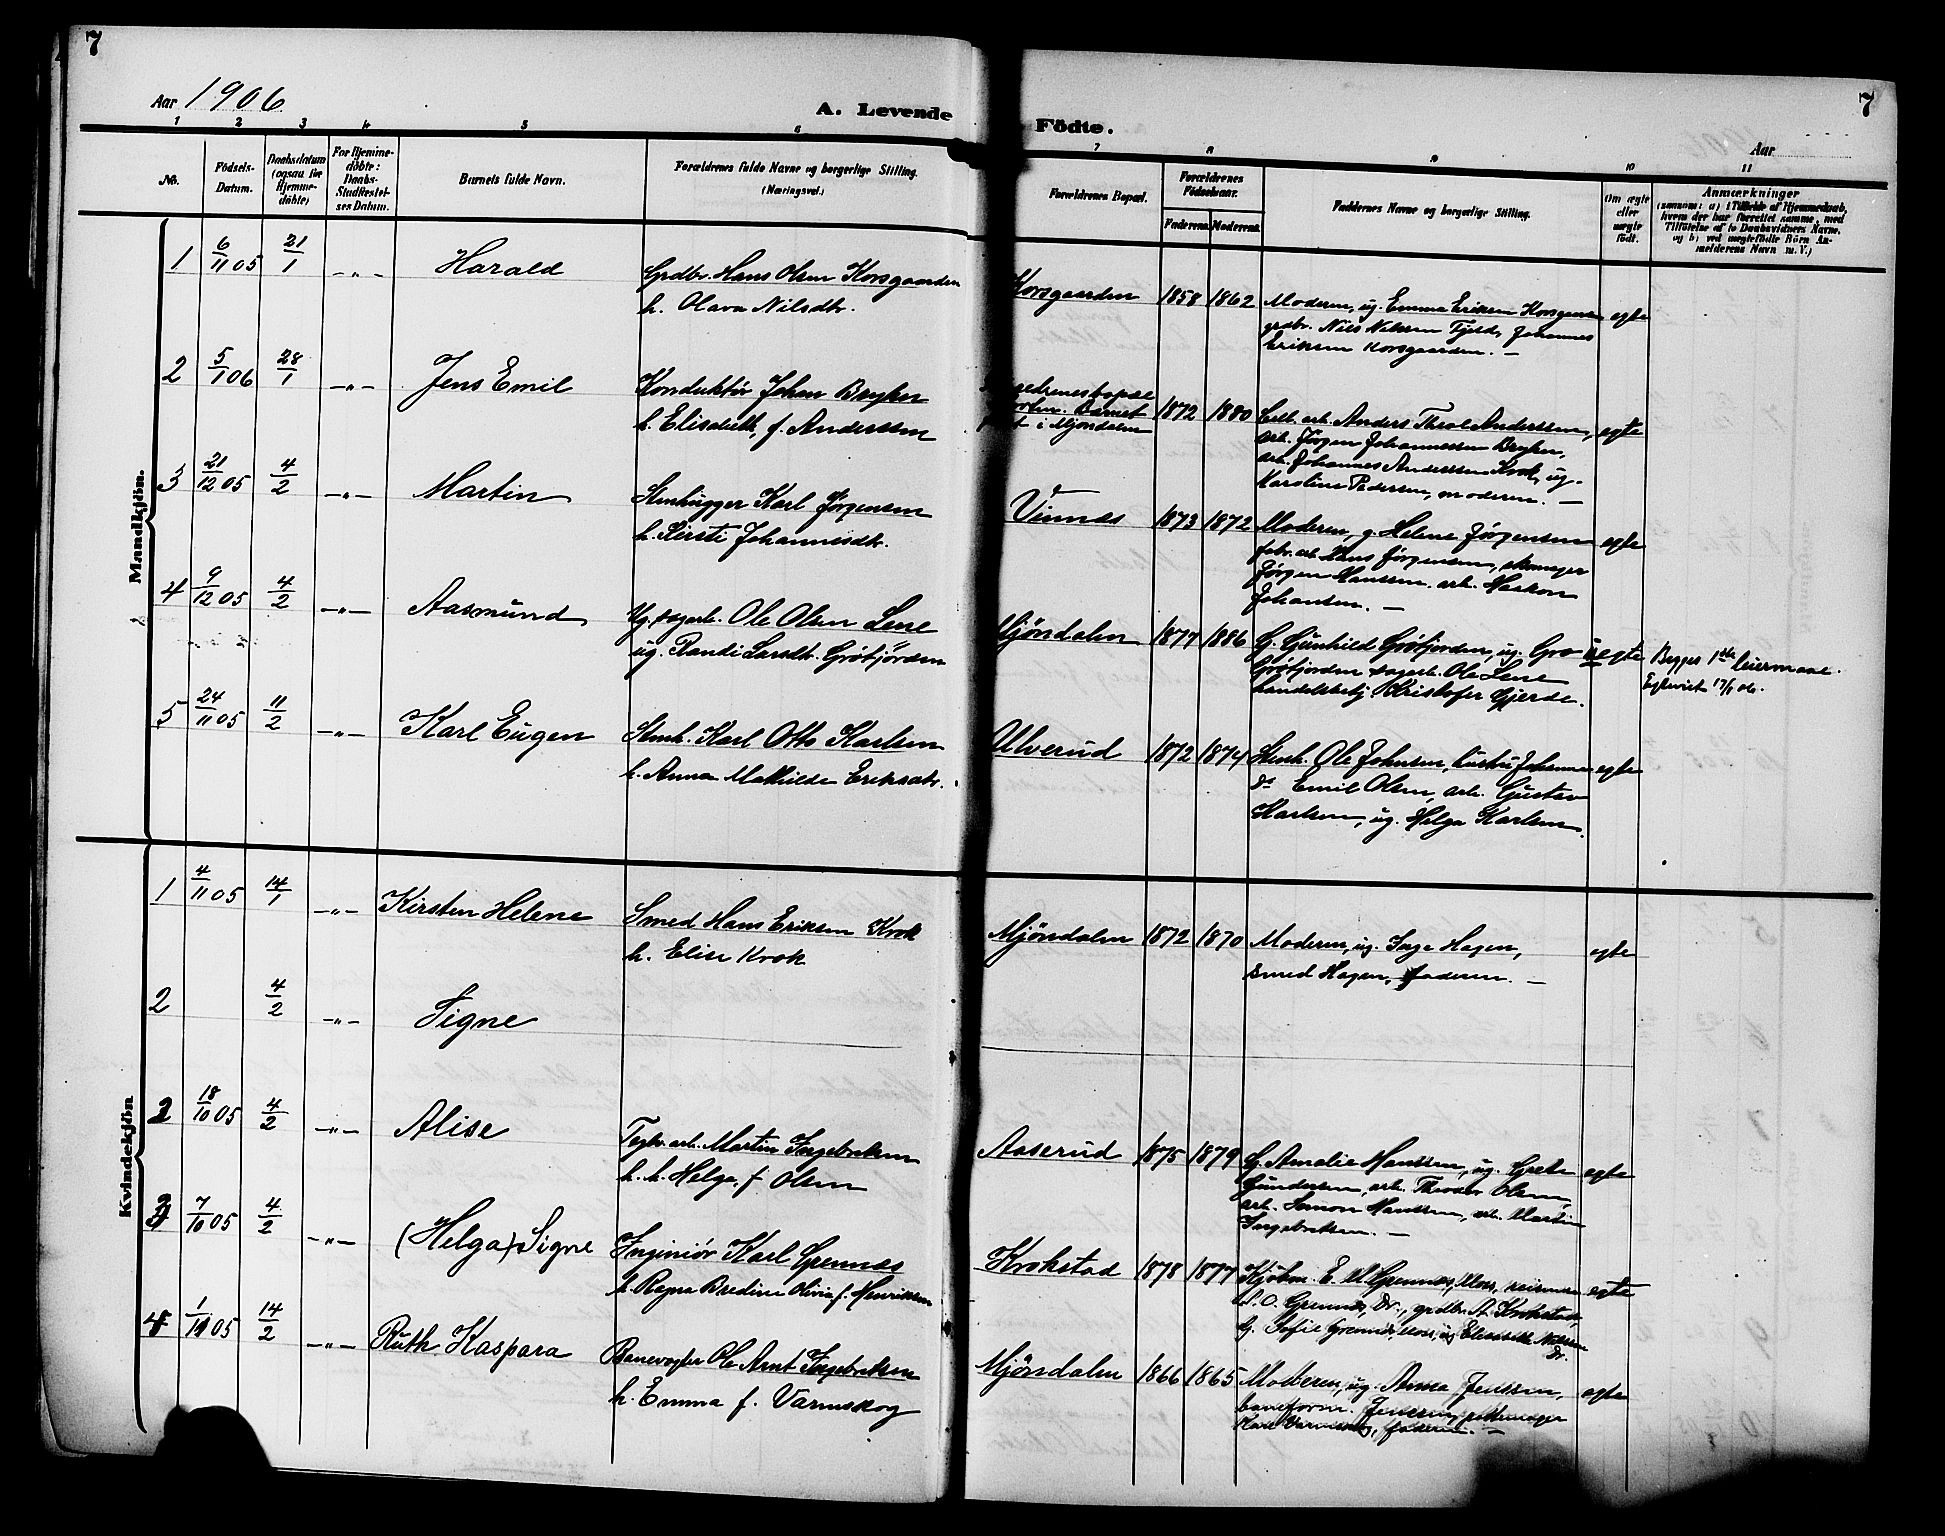 7
7
Aar 1906
A. Levende Födte.
Aar
1 2 3 4 5 6 7 8 9 10 11
No.
Födsels-Datum.
Daabsdatum (ogsaa for Hjemme-döbte)
For Hjemme-döbte: Daabs-Stadfæstel-ses Datum.
Barnets fulde Navn.
Forældrenes fulde Navne og borgerlige Stilling. (Næringsvei.)
Forældrenes Bopæl.
Forældrenes Födselsaar.
Faderens Moderens
Faddernes Navne og borgerlige Stilling.
Om ægte eller uægte födt.
Anmærkninger
(saasom: a) i Tilfælde af Hjemmedaab,
hvem der har forrettet samme, med
Tilföielse af to Daabsvidners Navne,
og b) ved uægtefödte Börn An-
melderens Navn m. V.)
Mandkjön.
1 6/11 05 21/1 -„- Harald
Grdbr. Hans Olsen Korsgaarden
h. Olava Nilsdtr.
Korsgaarden 1858 1862
Moderen, ug. Emma Eriksen Korsgaarden
grdbr. Nils Nilssen Fjeld, Johannes
Eriksen Korsgaarden. —
egte
2 5/1 06 28/1 -„- Jens Emil
Konduktör Johan Bryhn
h. Elisabeth, f. Anderssen
Barnet
i Mjöndalen
1872 1880
arb. Anders Anderssen,
arb. Jörgen Johannessen Bryhn,
arb. Johannes Anderssen Krok, ug.
Karoline Pedersen, moderen. —
egte
3 21/12 05 4/2 -„- Martin
Stenhugger Karl Jörgensen
h. Kirsti Johannesdtr.
Vinnæs 1873 1872
Moderen, g. Helene Jörgensen
fabr. arb. Hans Jörgensen, skomager
Jörgen Hanssen, arb. Haakon
Johansen. —
egte
4 9/12 05 4/2 -„- Aasmund
Ug. sagarb. Ole Olsen Lene
ug. Randi Larsdtr. Grötjorden
Mjöndalen 1877 1886
G. Gunhild Grötjorden, ug. Gro
Grötjorden sagarb. Ole Lene
handelsbetj. Kristofer Gjerde.
uegte
Begges 1ste leiermaal.
Egteviet 17/1 06.
5 24/11 05 11/2 -„- Karl Eugen
Stenh. Karl Otto Karlsen
h. Anna Mathilde Eriksdtr.
Ulverud 1872 1874
Stenh. Ole Johnsen, hustru Johanne
Do Emil Olsen, arb. Gustav
Karlsen, ug. Helga Karlsen.
egte
Kvindekjön
1 4/11 05 14/1 -„- Kirsten Helene
Smed Hans Eriksen Krok
h. Elise Krok
Mjöndalen 1872 1870
Moderen, ug. Inga Hagen,
smed Hagen, faderen. —
egte
2 4/2 -„- Signe
2 18/10 05 4/2 -„- Alise
Teglv. arb. Martin Ingebretsen
h. h. Helga f. Olsen
Aaserud 1875 1879
G. Amalie Hanssen, ug. Grete
Gundersen, arb. Theodor Olsen,
arb. Simon Hanssen, arb. Martin
Ingebretsen. —
egte
3 7/10 05 4/2 -„- (Helga) Signe
Ingeniör Karl Grennæs
h. Ragna Bredine Olivia f. Henriksen
Krokstad 1878 1877
Kjöbm. E. M. Grennæs, Moss,
O. Grennæs, Dr., grdbr. A. Krokstad,
G. Sofie Grennæs, Moss, ug. Elisabeth Nilsen
Dr.
egte
4 1/11 05 14/2 -„- Ruth Kaspara
Banevogter Ole Arnt Ingebretsen
h. Emma f. Varmskog
Mjöndalen 1866 1865
Moderen, ug. Anna Jenssen,
baneform. Jensen, pottemager
Karl Varmskog, faderen. —
egte